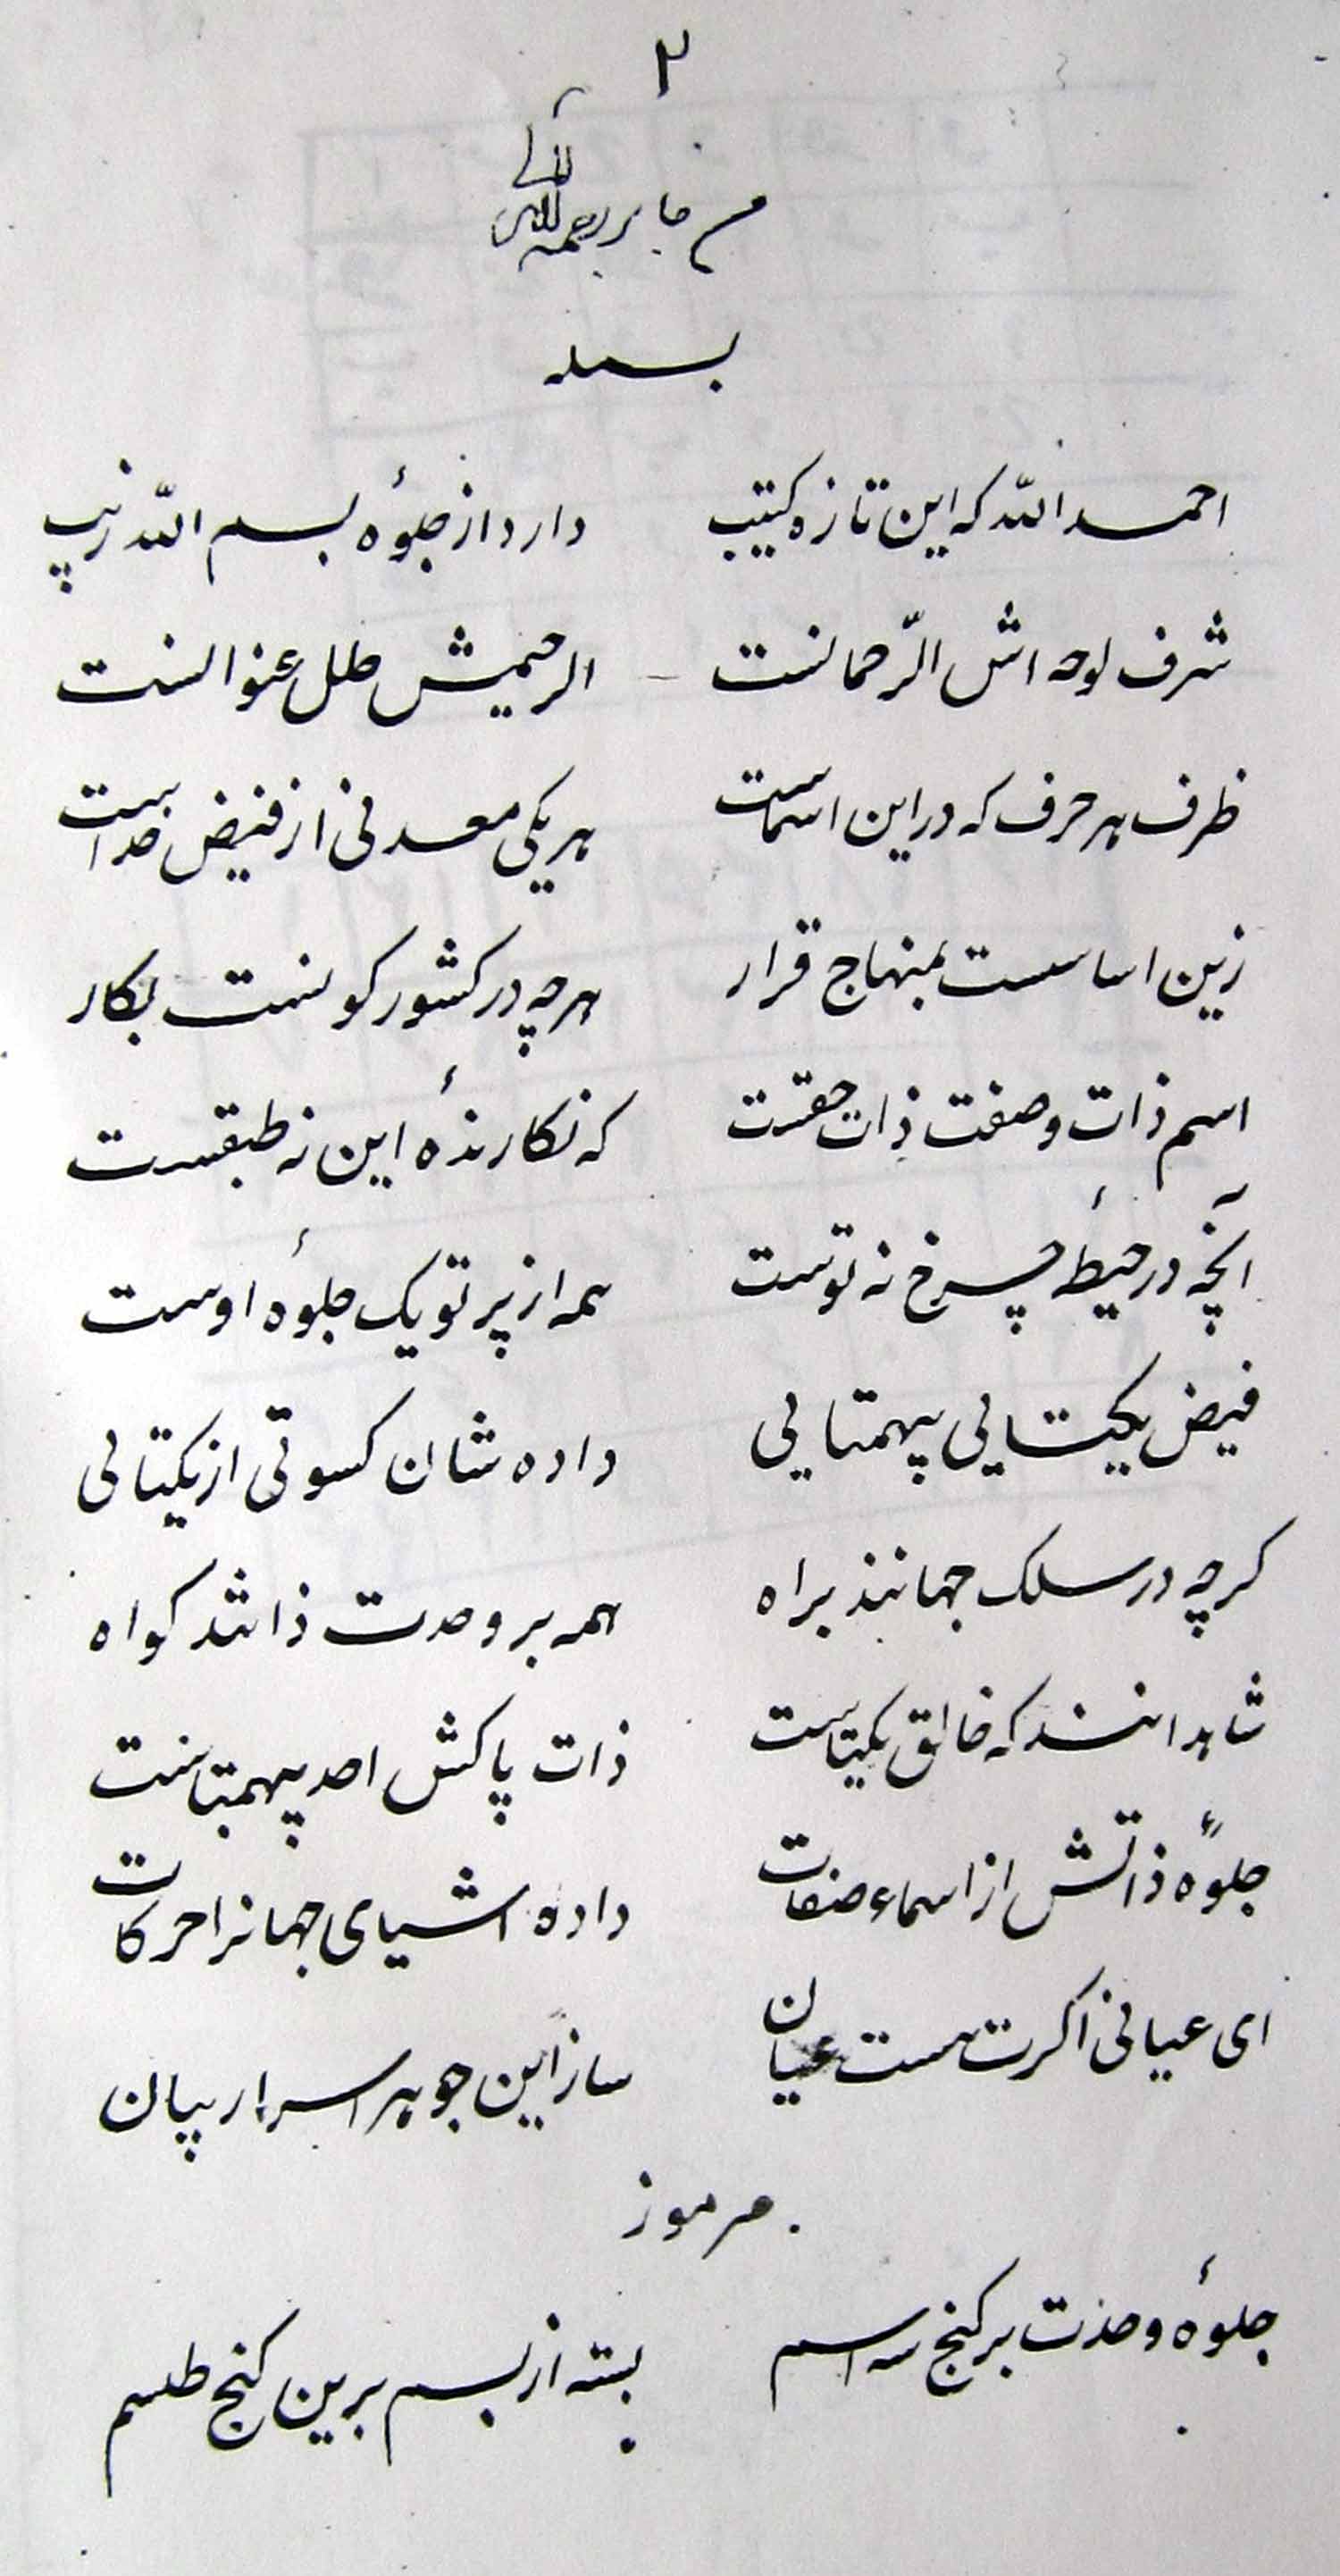 ۲
بسمله
احمد اللّه که این تازه کتیب
دارد از جلوهٔ بسم اللّه زیب
شرف لوحه اش الرّحمانست
الرحیمیش طلل عنوانست
ظرف هر حرف که در این اسماست
هر یکی معدنی از فیض خداست
زین اساسست بمنهاج قرار
هرچه در کشور کونست بکار
اسم ذات و صفت ذات حقست
که نکارندهٔ این نه طبقست
آنچه در حیطهٔ چرخ نه توست
همه از پرتو یک جلوهٔ اوست
فیض یکیتایی بیهمتایی
داده شان کسوتی از یکیتائی
کرچه در سلک جهانند براه
همه بر وحدت ذاتند کواه
شاهدانند که خالق یکیتاست
ذات پاکش احد بیهمتاست
جلوهٔ ذاتش از اسماء صفات
داده اشیای جهانرا حرکات
ای عیانی اکرت هست عیان
ساز این جوهر اسرار بیان
مرموز
جلوهٔ وحدت بر کنج سه اسم
بسته از بسم برین کنج طلسم